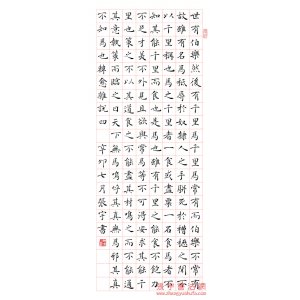 世有伯樂然後有千里馬千里馬常有而伯樂不常有
故雖有名馬祗辱於奴隸人之手駢死於槽櫪之間不
以千里稱也馬之千里者一食或盡粟一石食馬者不
知其能千里而食也是馬也雖有千里之能食不飽力
不足才美不外見且欲與常馬等不可得安求其能千
里也策之不以其道食之不能盡其材鳴之而不能通
其意執策而臨之曰天下無馬嗚呼其真無馬邪其真
不知馬也韓愈雜說四 辛卯七月張宇書